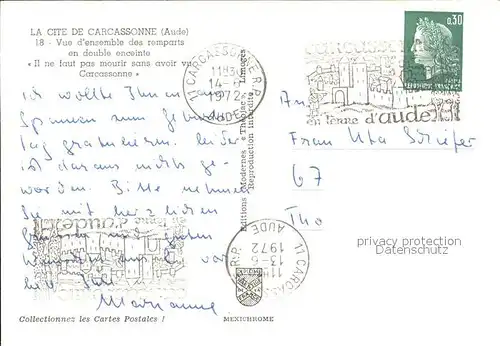 LA CITE DE CARCASSONNE (Aude)
18 - Vue d'ensemble des remparts
en double enceinte
« Il ne faut pas mourir sans avoir vu
Carcassonne »
ich wollte Ihnen aus
Spanien zum Geburts-
tag gratulieren. Leider
ist daraus nichts ge-
worden. Bitte nehmen
Sie mit herzlichen
Marianne
Collectionnez les Cartes Postales !
MEXICHROME
Editions Modernes « Théojac », Limoges
Reproduction Interdite
11 CARCASSONNE R.P.
11H30
14-6
1972
AUDE
carcassonne
en terre d'aude
0,30
REPUBLIQUE FRANCAISE
An
Frau Uta
67
11 CARCASSONNE R.P.
13-6
1972
AUDE
privacy protection
Datenschutz